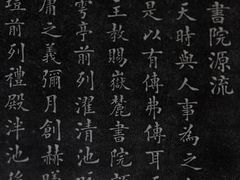 書院源流
天時與人事為之
是以有傳弗傳耳
教賜嶽麓書院
亭前列濯清池
庸之義彌月創赫
前列禮殿泮池後